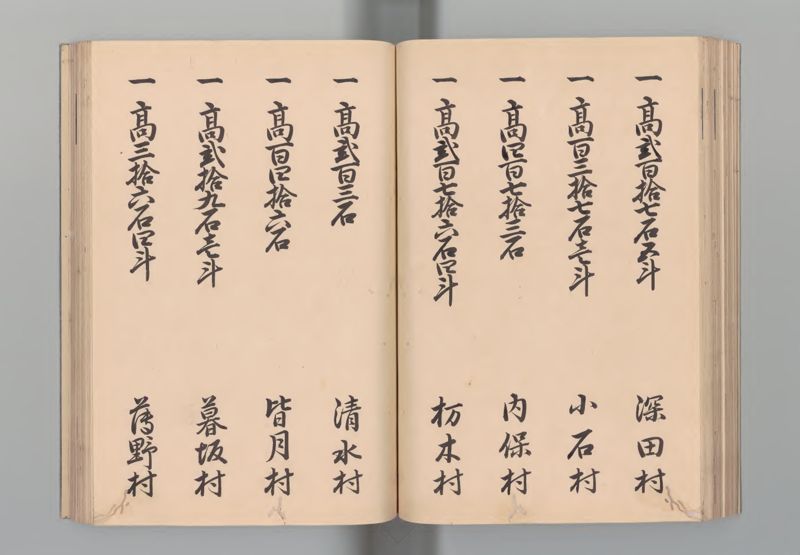 一 高弐百拾七石五斗 深田村
一 高百三拾七石壱斗 小石村
一 高四百七拾三石 内保村
一 高弐百七拾六石四斗 枋木村
一 高弐百三石 清水村
一 高百四拾六石 皆月村
一 高弐拾九石壱斗 暮坂村
一 高三拾六石四斗 薄野村